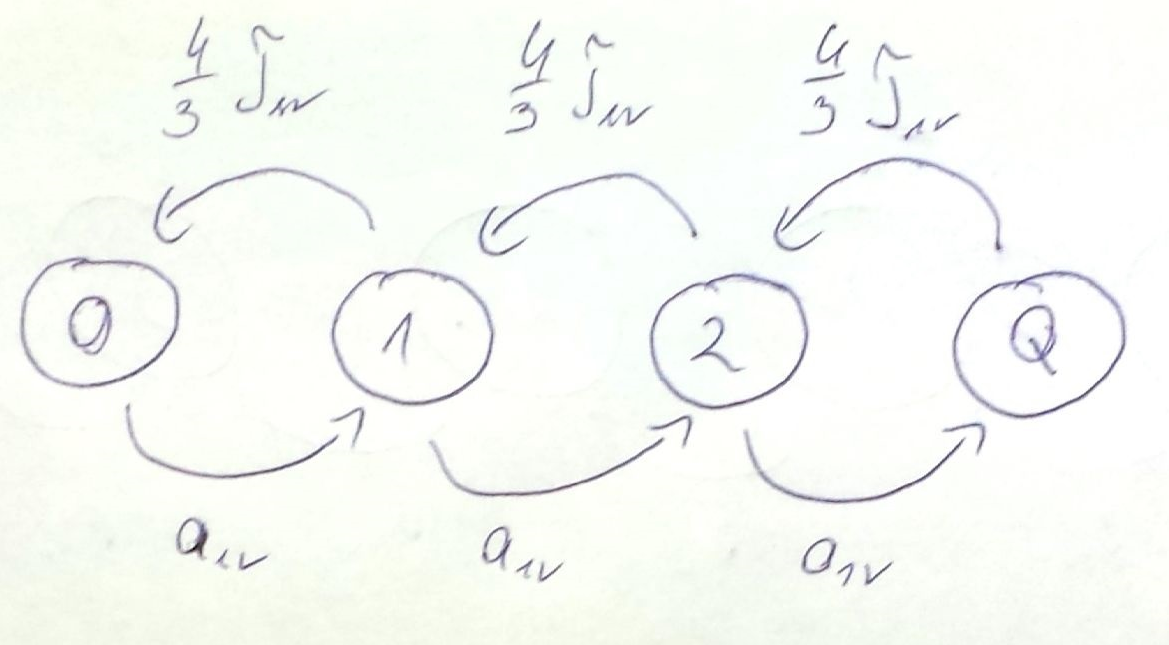 4/3 j̃₁ᵥ 4/3 j̃₁ᵥ 4/3 j̃₁ᵥ
0 1 2 Q
a₁ᵥ a₁ᵥ a₁ᵥ